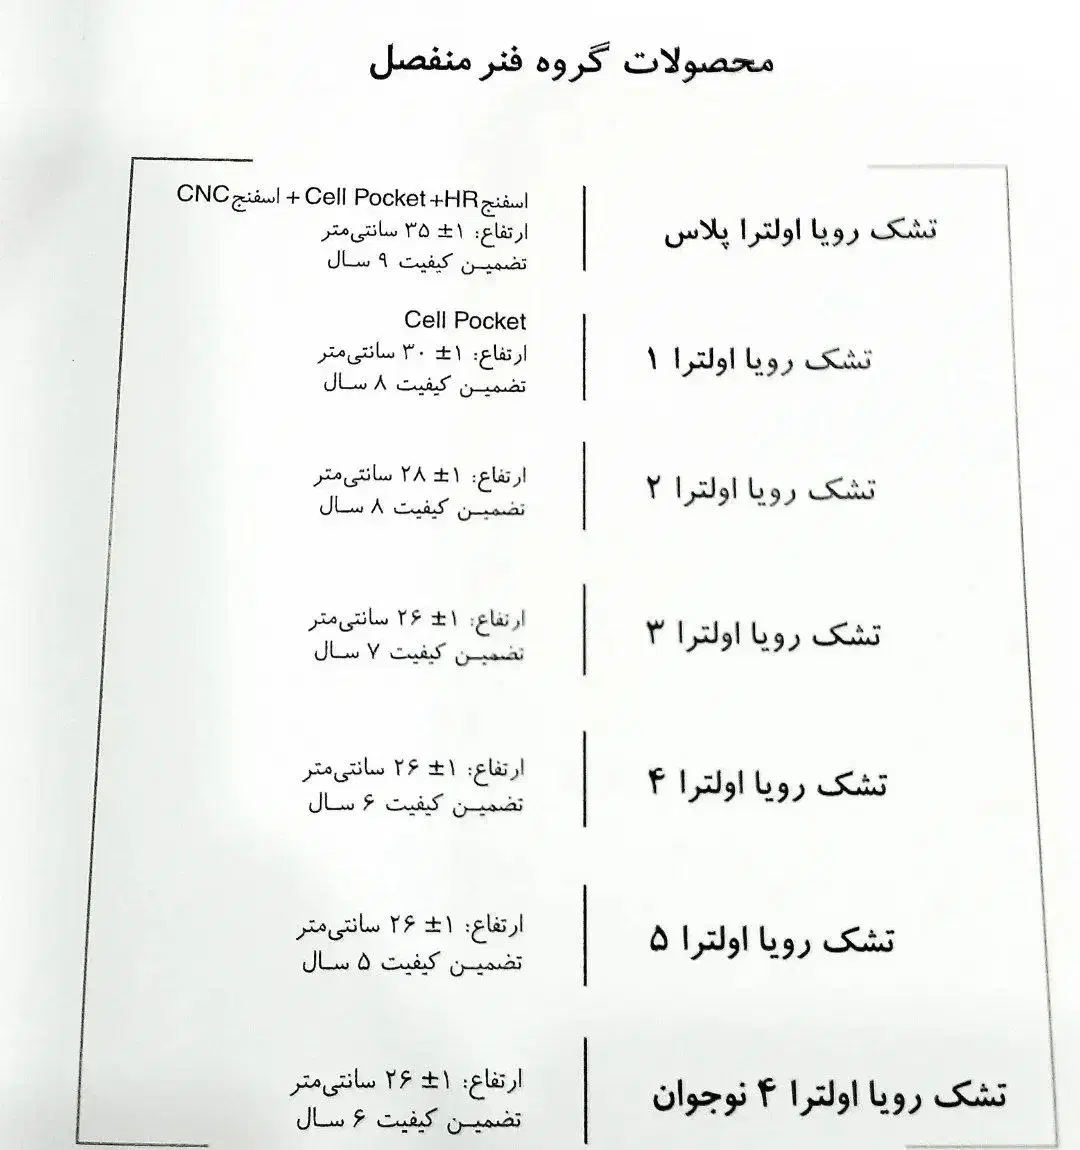 محصولات گروه فنر منفصل
تشک رویا اولترا پلاس
اسفنج HR+ Cell Pocket + اسفنج CNC
ارتفاع: ۱± ۳۵ سانتی‌متر
تضمین کیفیت ۹ سال
تشک رویا اولترا ۱
Cell Pocket
ارتفاع: ۱± ۳۰ سانتی‌متر
تضمین کیفیت ۸ سال
تشک رویا اولترا ۲
ارتفاع: ۱± ۲۸ سانتی‌متر
تضمین کیفیت ۸ سال
تشک رویا اولترا ۳
ارتفاع: ۱± ۲۶ سانتی‌متر
تضمین کیفیت ۷ سال
تشک رویا اولترا ۴
ارتفاع: ۱± ۲۶ سانتی‌متر
تضمین کیفیت ۶ سال
تشک رویا اولترا ۵
ارتفاع: ۱± ۲۶ سانتی‌متر
تضمین کیفیت ۵ سال
تشک رویا اولترا ۴ نوجوان
ارتفاع: ۱± ۲۶ سانتی‌متر
تضمین کیفیت ۶ سال